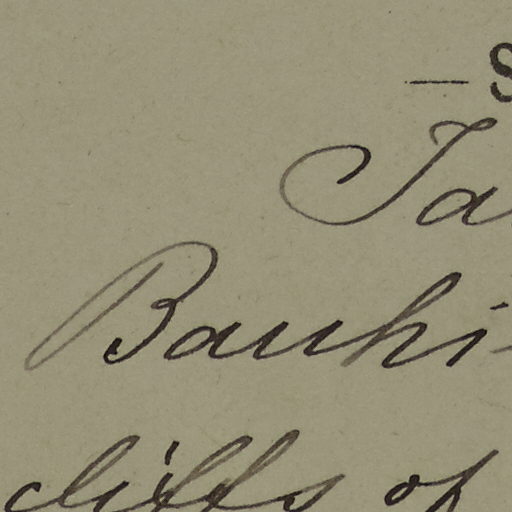 — S
Ja
Bauhi
cliffs of